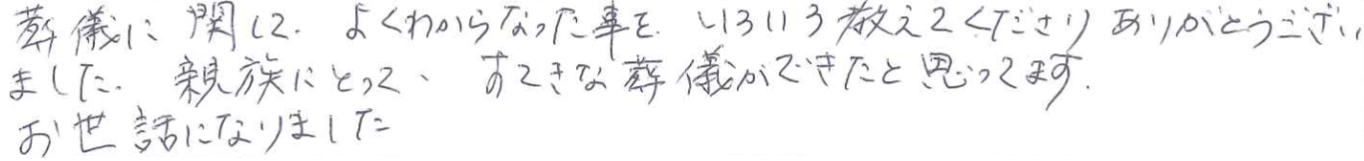 葬儀に関して、よくわからなった事を、いろいろ教えてくださり ありがとうござい
ました。親族にとって、すてきな葬儀ができたと思ってます。
お世話になりました